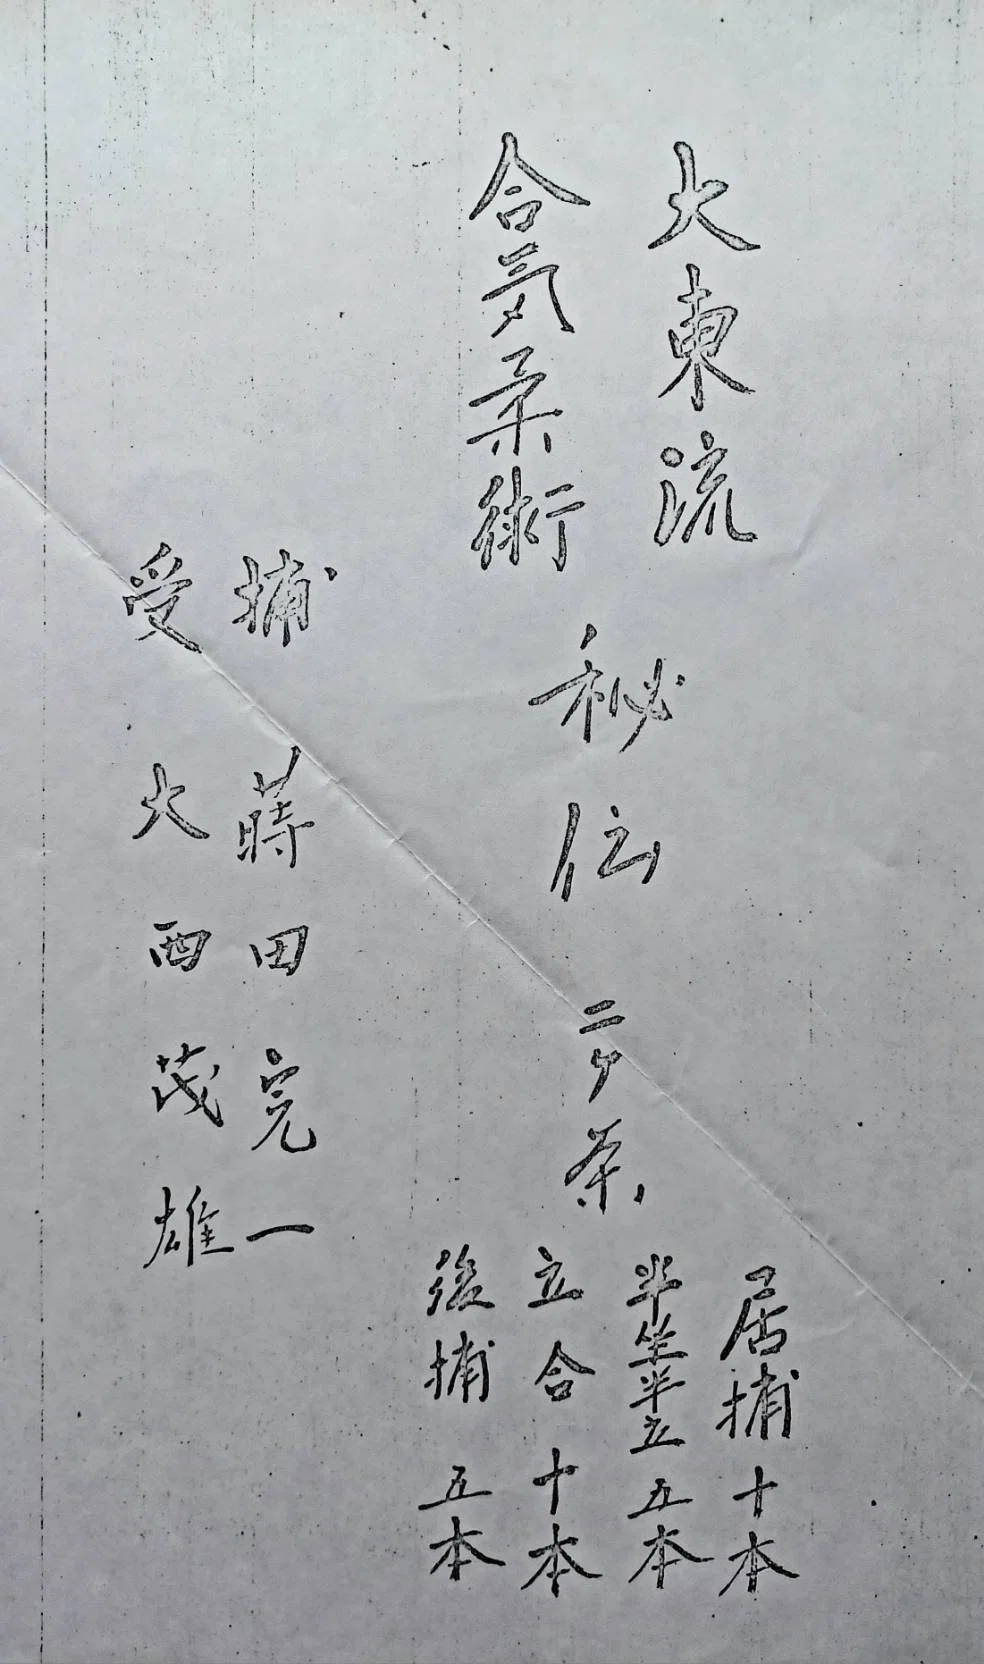 大東流
合気柔術
秘伝二ヶ条
居捕十本
半坐半立五本
立合十本
後捕五本
捕 蒔田完一
受 大西茂雄